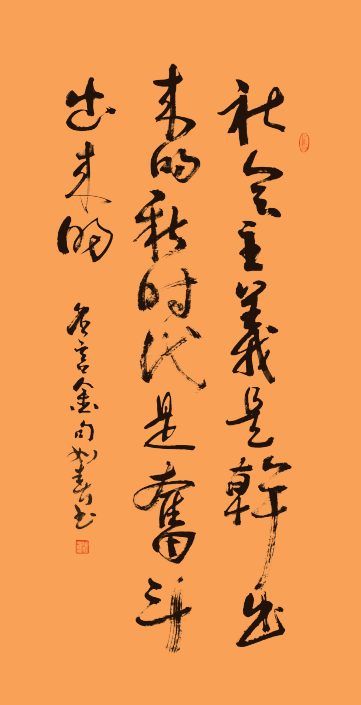 社会主義是幹出
来的新时代是奮斗
出来的
名言金句如春书